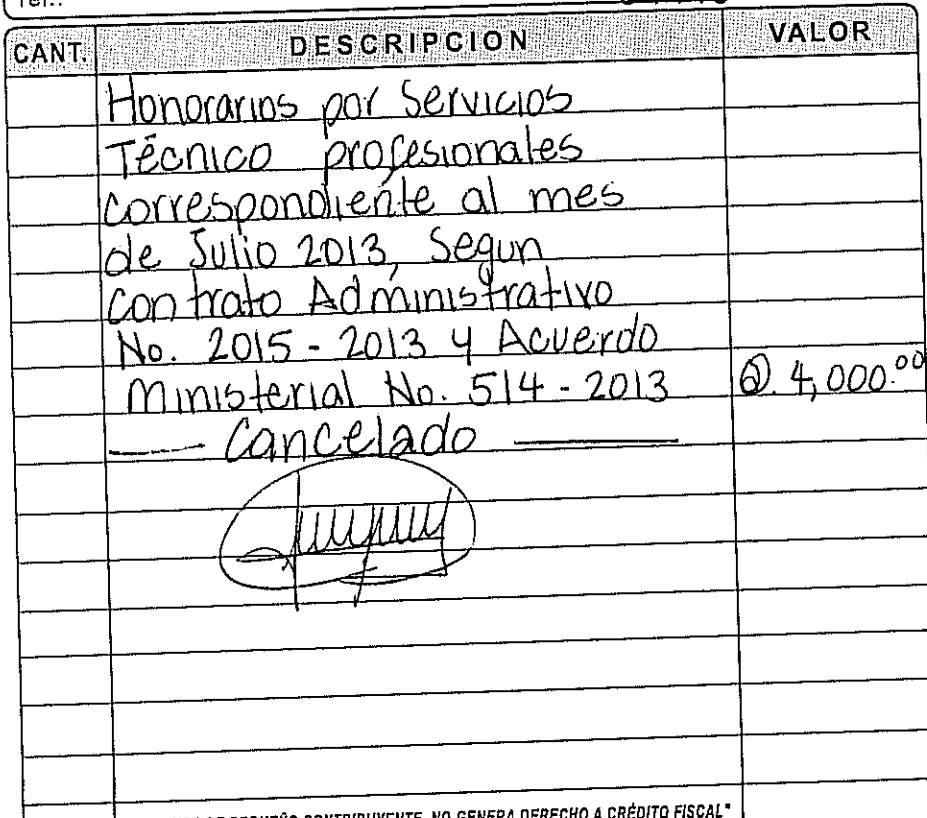 Tel.:
CANT. DESCRIPCION VALOR
Honorarios por Servicios
Técnico profesionales
correspondiente al mes
de Julio 2013, Segun
contrato Administrativo
No. 2015 - 2013 y Acuerdo
Ministerial No. 514 - 2013 Q. 4,000.00
— Cancelado —
PEQUEÑO CONTRIBUYENTE, NO GENERA DERECHO A CRÉDITO FISCAL"